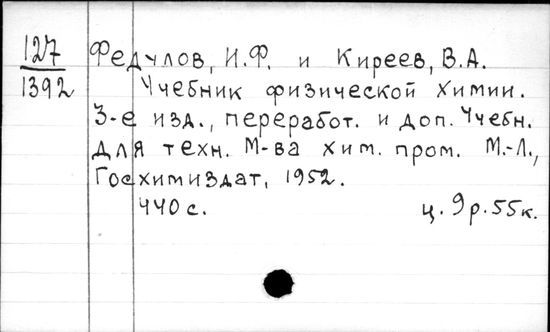 127 Федулов, И.Ф. и Киреев, В.А.
1392 Учебник физической химии.
3-е изд., переработ. и доп. Учебн.
для техн. М-ва хим. пром. М.-Л.,
Госхимиздат, 1952.
440 с. ц. 9 р. 55 к.